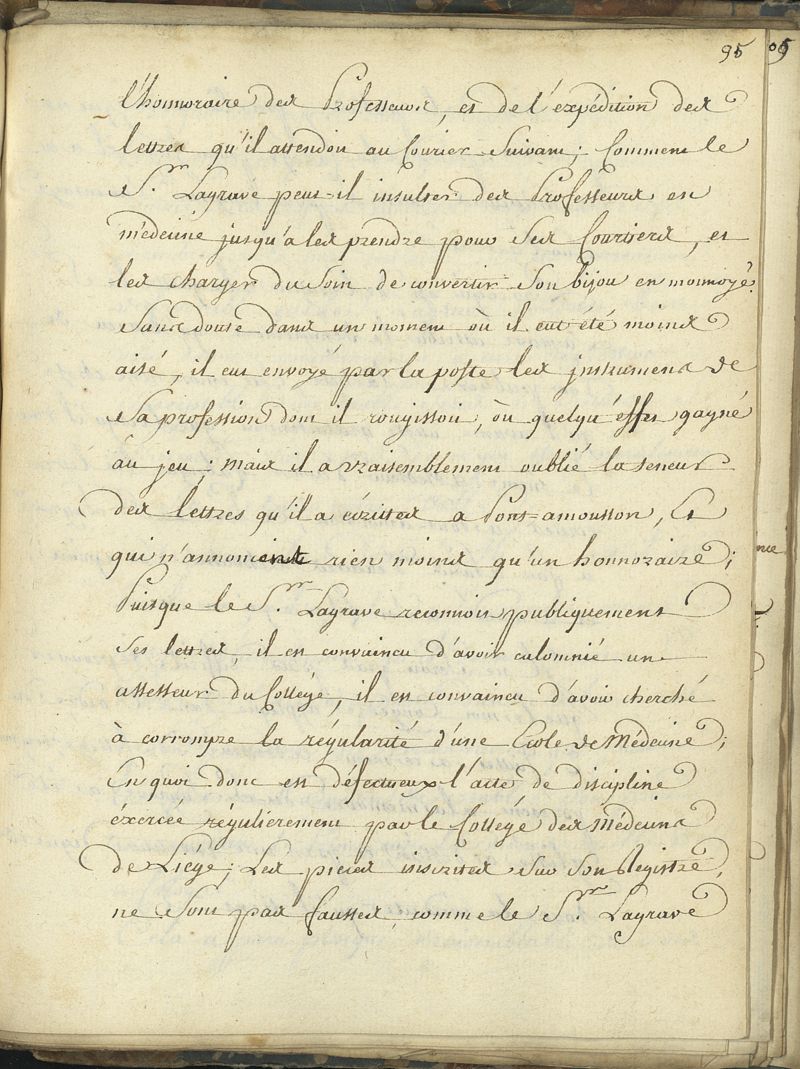 95
l'honnoraire des Professeurs, et de l'éxpédition des
lettres qu'il attendoit au Courier Suivant; Comment le
S.r Lagrave peut-il insulter des Professeurs en
médecine jusqu'a les prendre pour Ses Courtiers, et
les charger du Soin de convertir Son bijou en monnoyé?
Sans doute dans un moment où il eut été moins
aisé, il eut envoyé par la poste les jnstrumens de
Sa profession dont il rougissoit, òu quelqu'effet gagné
au jeu: mais il a vraisemblement oublié la teneur
des léttres qu'il a écrittes a Pont-amousson, Et
qui n'annoncient rien moins qu'un honnoraire;
Puisque le S.r Lagrave reconnoit publiquement
Ses lettres, il est convaincu d'avoir calomnié un
assesseur du Collége, il est convaincu d'avoir cherché
à corrompre la régularité d'une Ecole de Médecine;
En quoi donc est défectueux l'acte de discipline
éxercée réguliérement par le Collégé des Médecins
de Liége; Les piéces inscrites Sur Son Registre,
ne Sont pas fausses, comme le S.r Lagrave